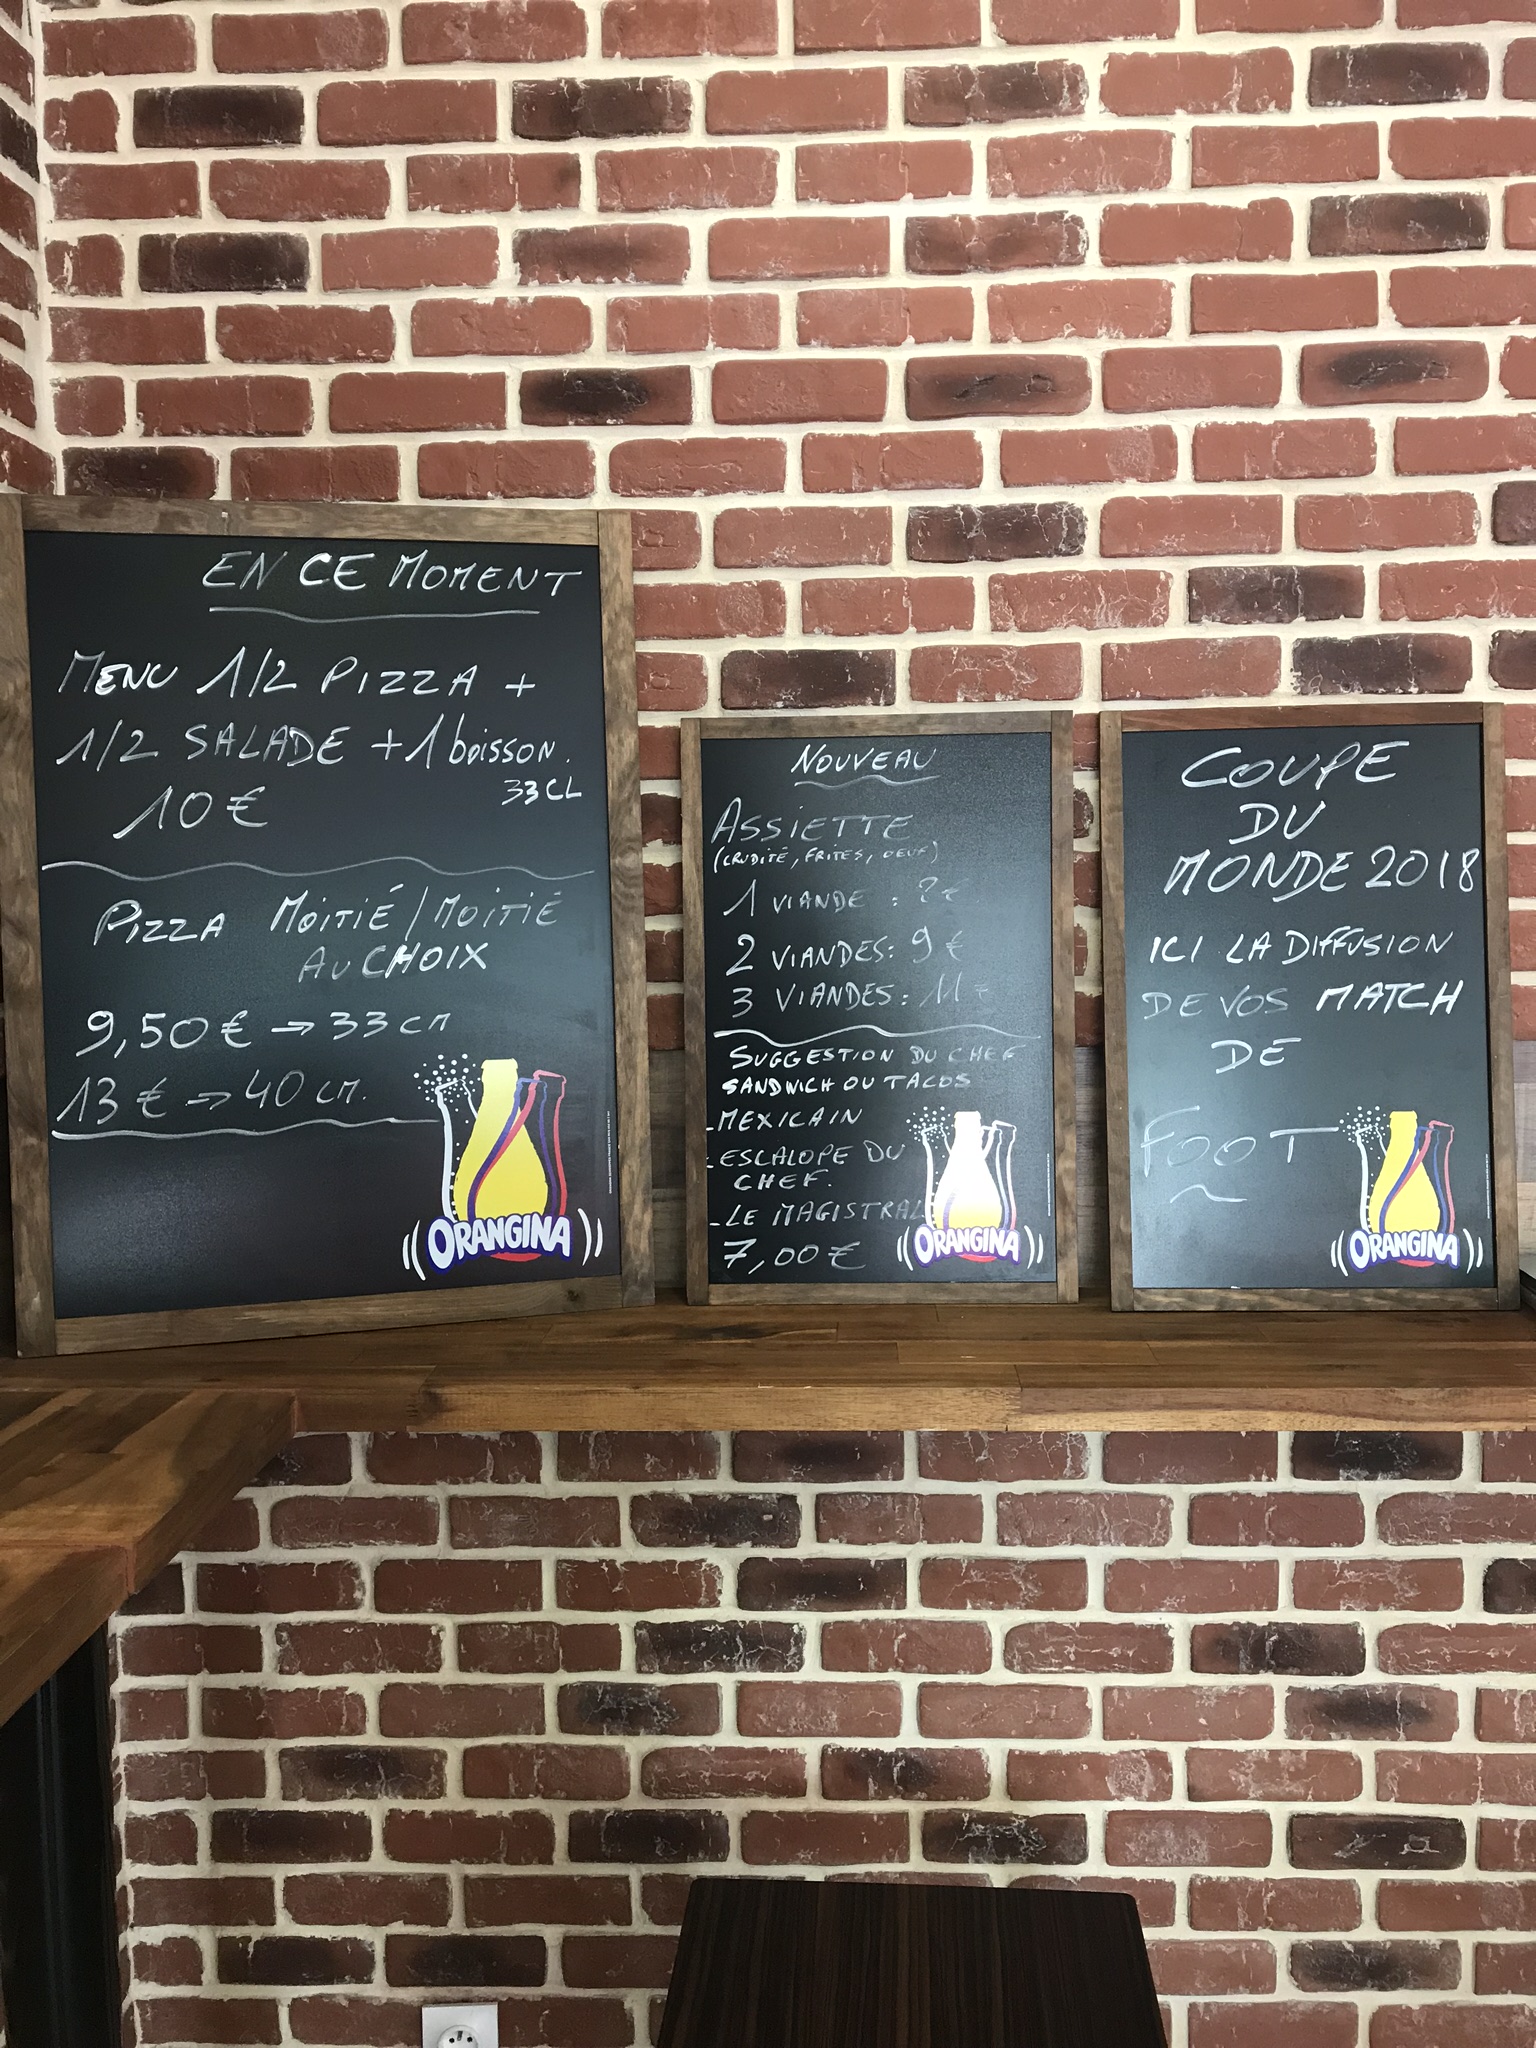 EN CE MOMENT
MENU 1/2 PIZZA +
1/2 SALADE + 1 boisson.
33CL
10 €
PIZZA MOITIÉ / MOITIÉ
AU CHOIX
9,50 € → 33 cm
13 € → 40 cm.
ORANGINA
NOUVEAU
ASSIETTE
(CRUDITÉ, FRITES, OEUF)
1 VIANDE :
2 VIANDES : 9 €
3 VIANDES : 11
SUGGESTION DU CHEF
SANDWICH OU TACOS
-MEXICAIN
-ESCALOPE DU
CHEF.
-LE MAGISTRAL
7,00 €
ORANGINA
COUPE
DU
MONDE 2018
ICI LA DIFFUSION
DE VOS MATCH
DE
FOOT
ORANGINA